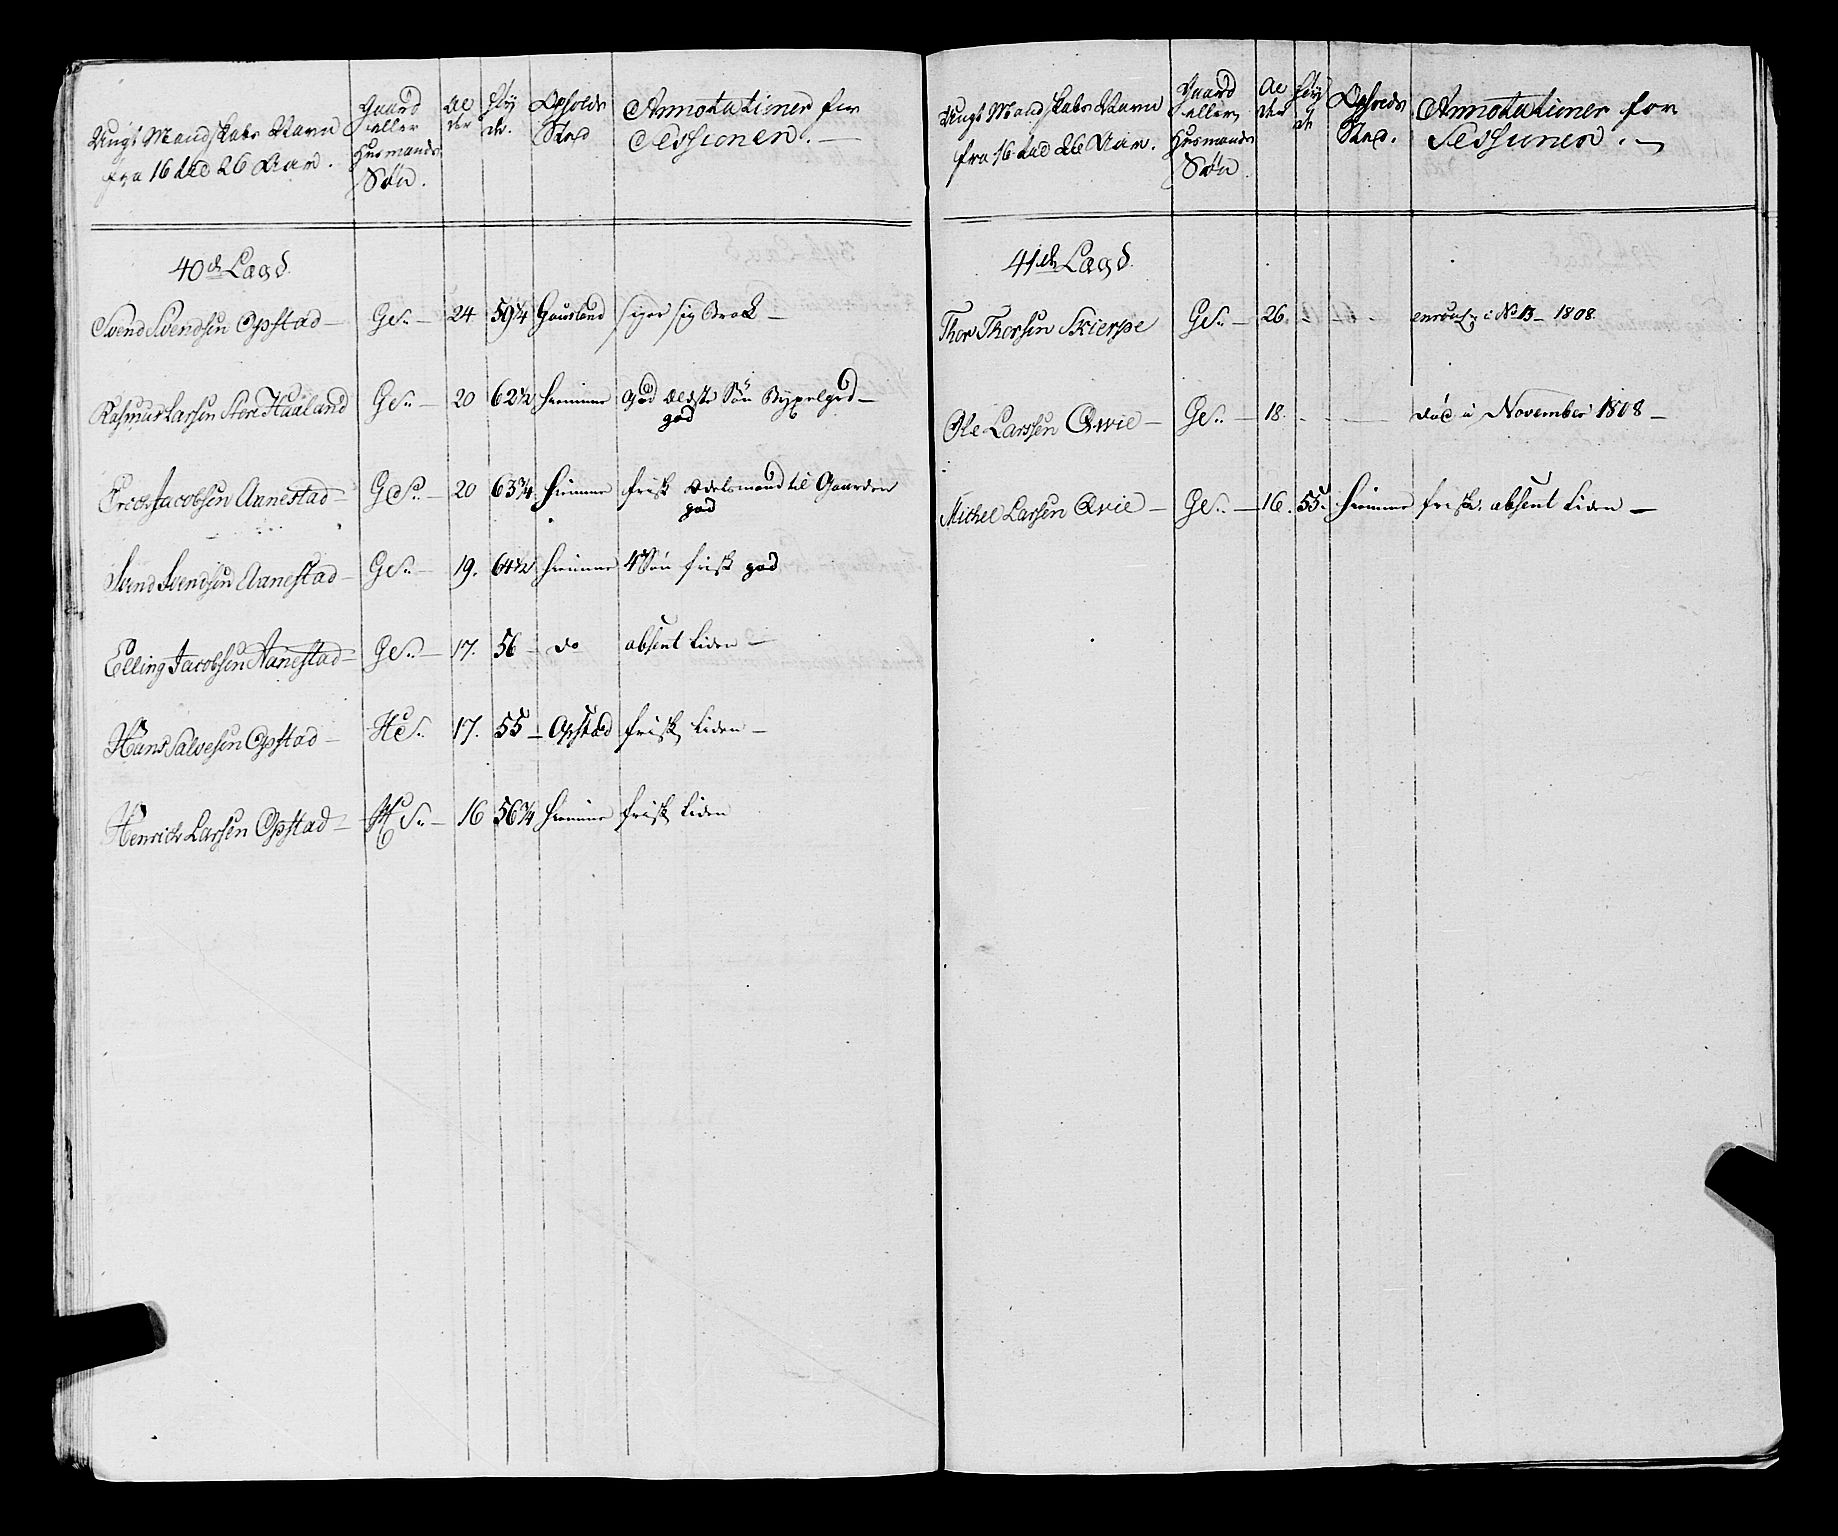 Ungt Mandskabs Navn
fra 16 til 26 Aar.
Gaard
eller
Husmands
Søn.
Al
der
Høy
de.
Opholds
Sted
Annotationer for
Sessionen. —
40de Lægd.
Svend Svendsen Opstad — Ge S. — 24 59 1/4 Gausland siger sig Brok —
Rasmus Larsen Store Haaland Ge S. — 20 62 1/2 hiemme god Ældste Søn
god
Erich Jacobsen Aanestad — Ge S. — 20 63 3/4 hiemme frisk Odelsmand til Gaarden
god
Svend Svendsen Aanestad — Ge S. — 19. 64 1/2 hiemme 4de Søn frisk god
Elling Jacobsen Aanestad — Ge S. — 17. 56 — do absent liden —
Hans Salvesen Opstad — H S. 17. 55 — Opstad frisk liden —
Henrich Larsen Opstad — H S. — 16 56 3/4 hiemme frisk liden
Ungt Mandskabs Navn
fra 16 til 26 Aar.
Gaard
eller
Husmands
Søn.
Al
der
Høy
de
Opholds
Sted.
Annotationer for
Sessionen. —
41de Lægd.
Thor Thorsen Skierpe Ge S. — 26. i No 13 — 1808.
Ole Larssen Qvie — Ge S. — 18. død i November 1808 —
Michel Larsen Qvie — Ge S. — 16. 55. hiemme frisk. absent liden —